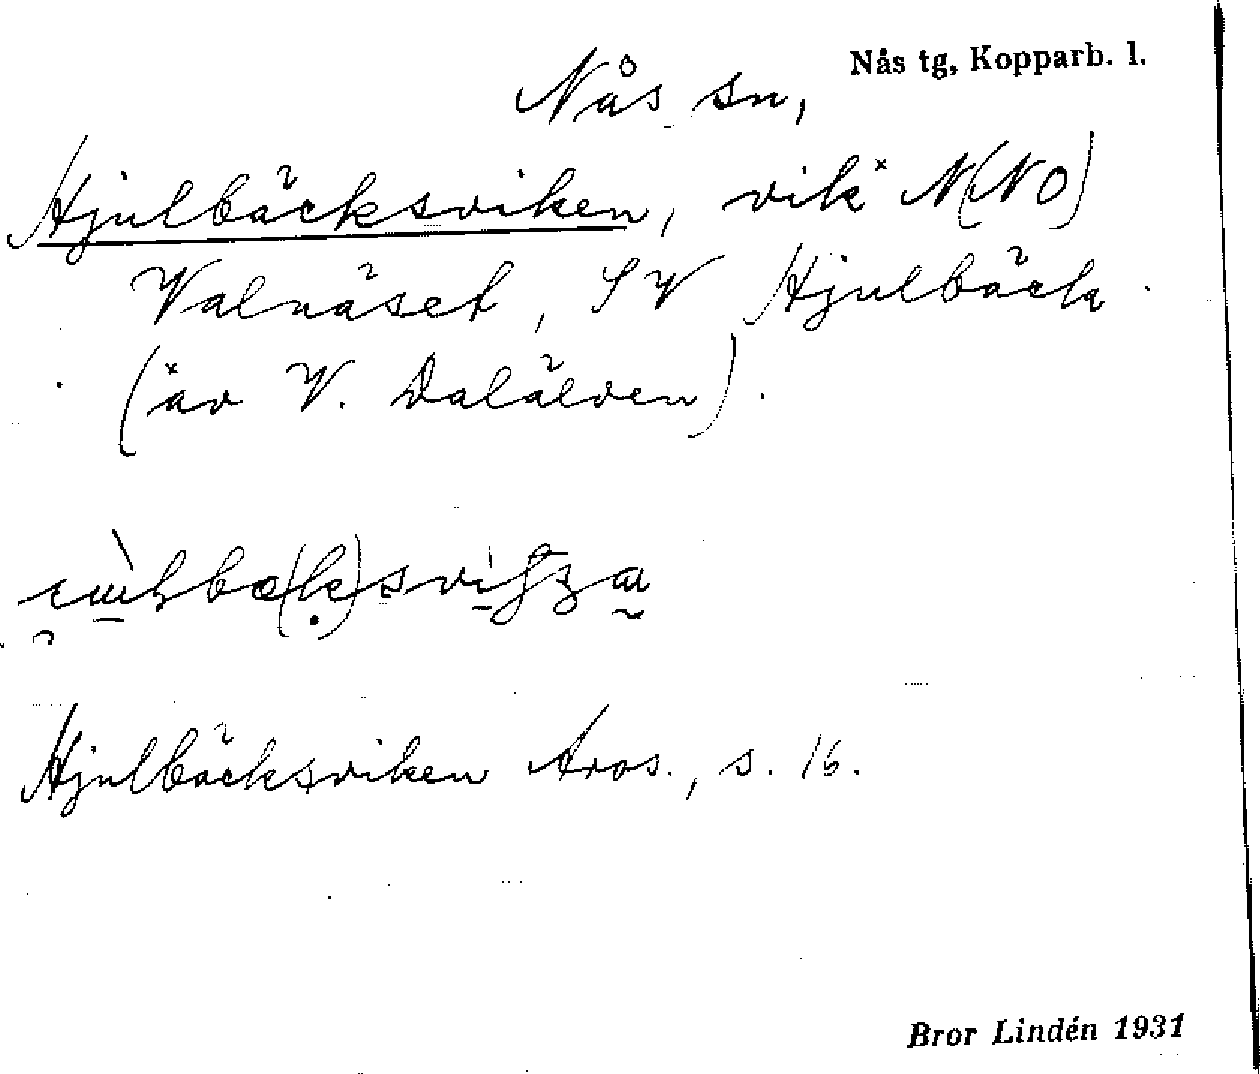 Nås tg, Kopparb. l.
Nås sn,
Hjulbäcksviken, vikˣ N(NO)
Valnäset, SV Hjulbäck
(ˣav V. Dalälven).
Hjulbäcksviken Aros., s. 16.
Bror Lindén 1931